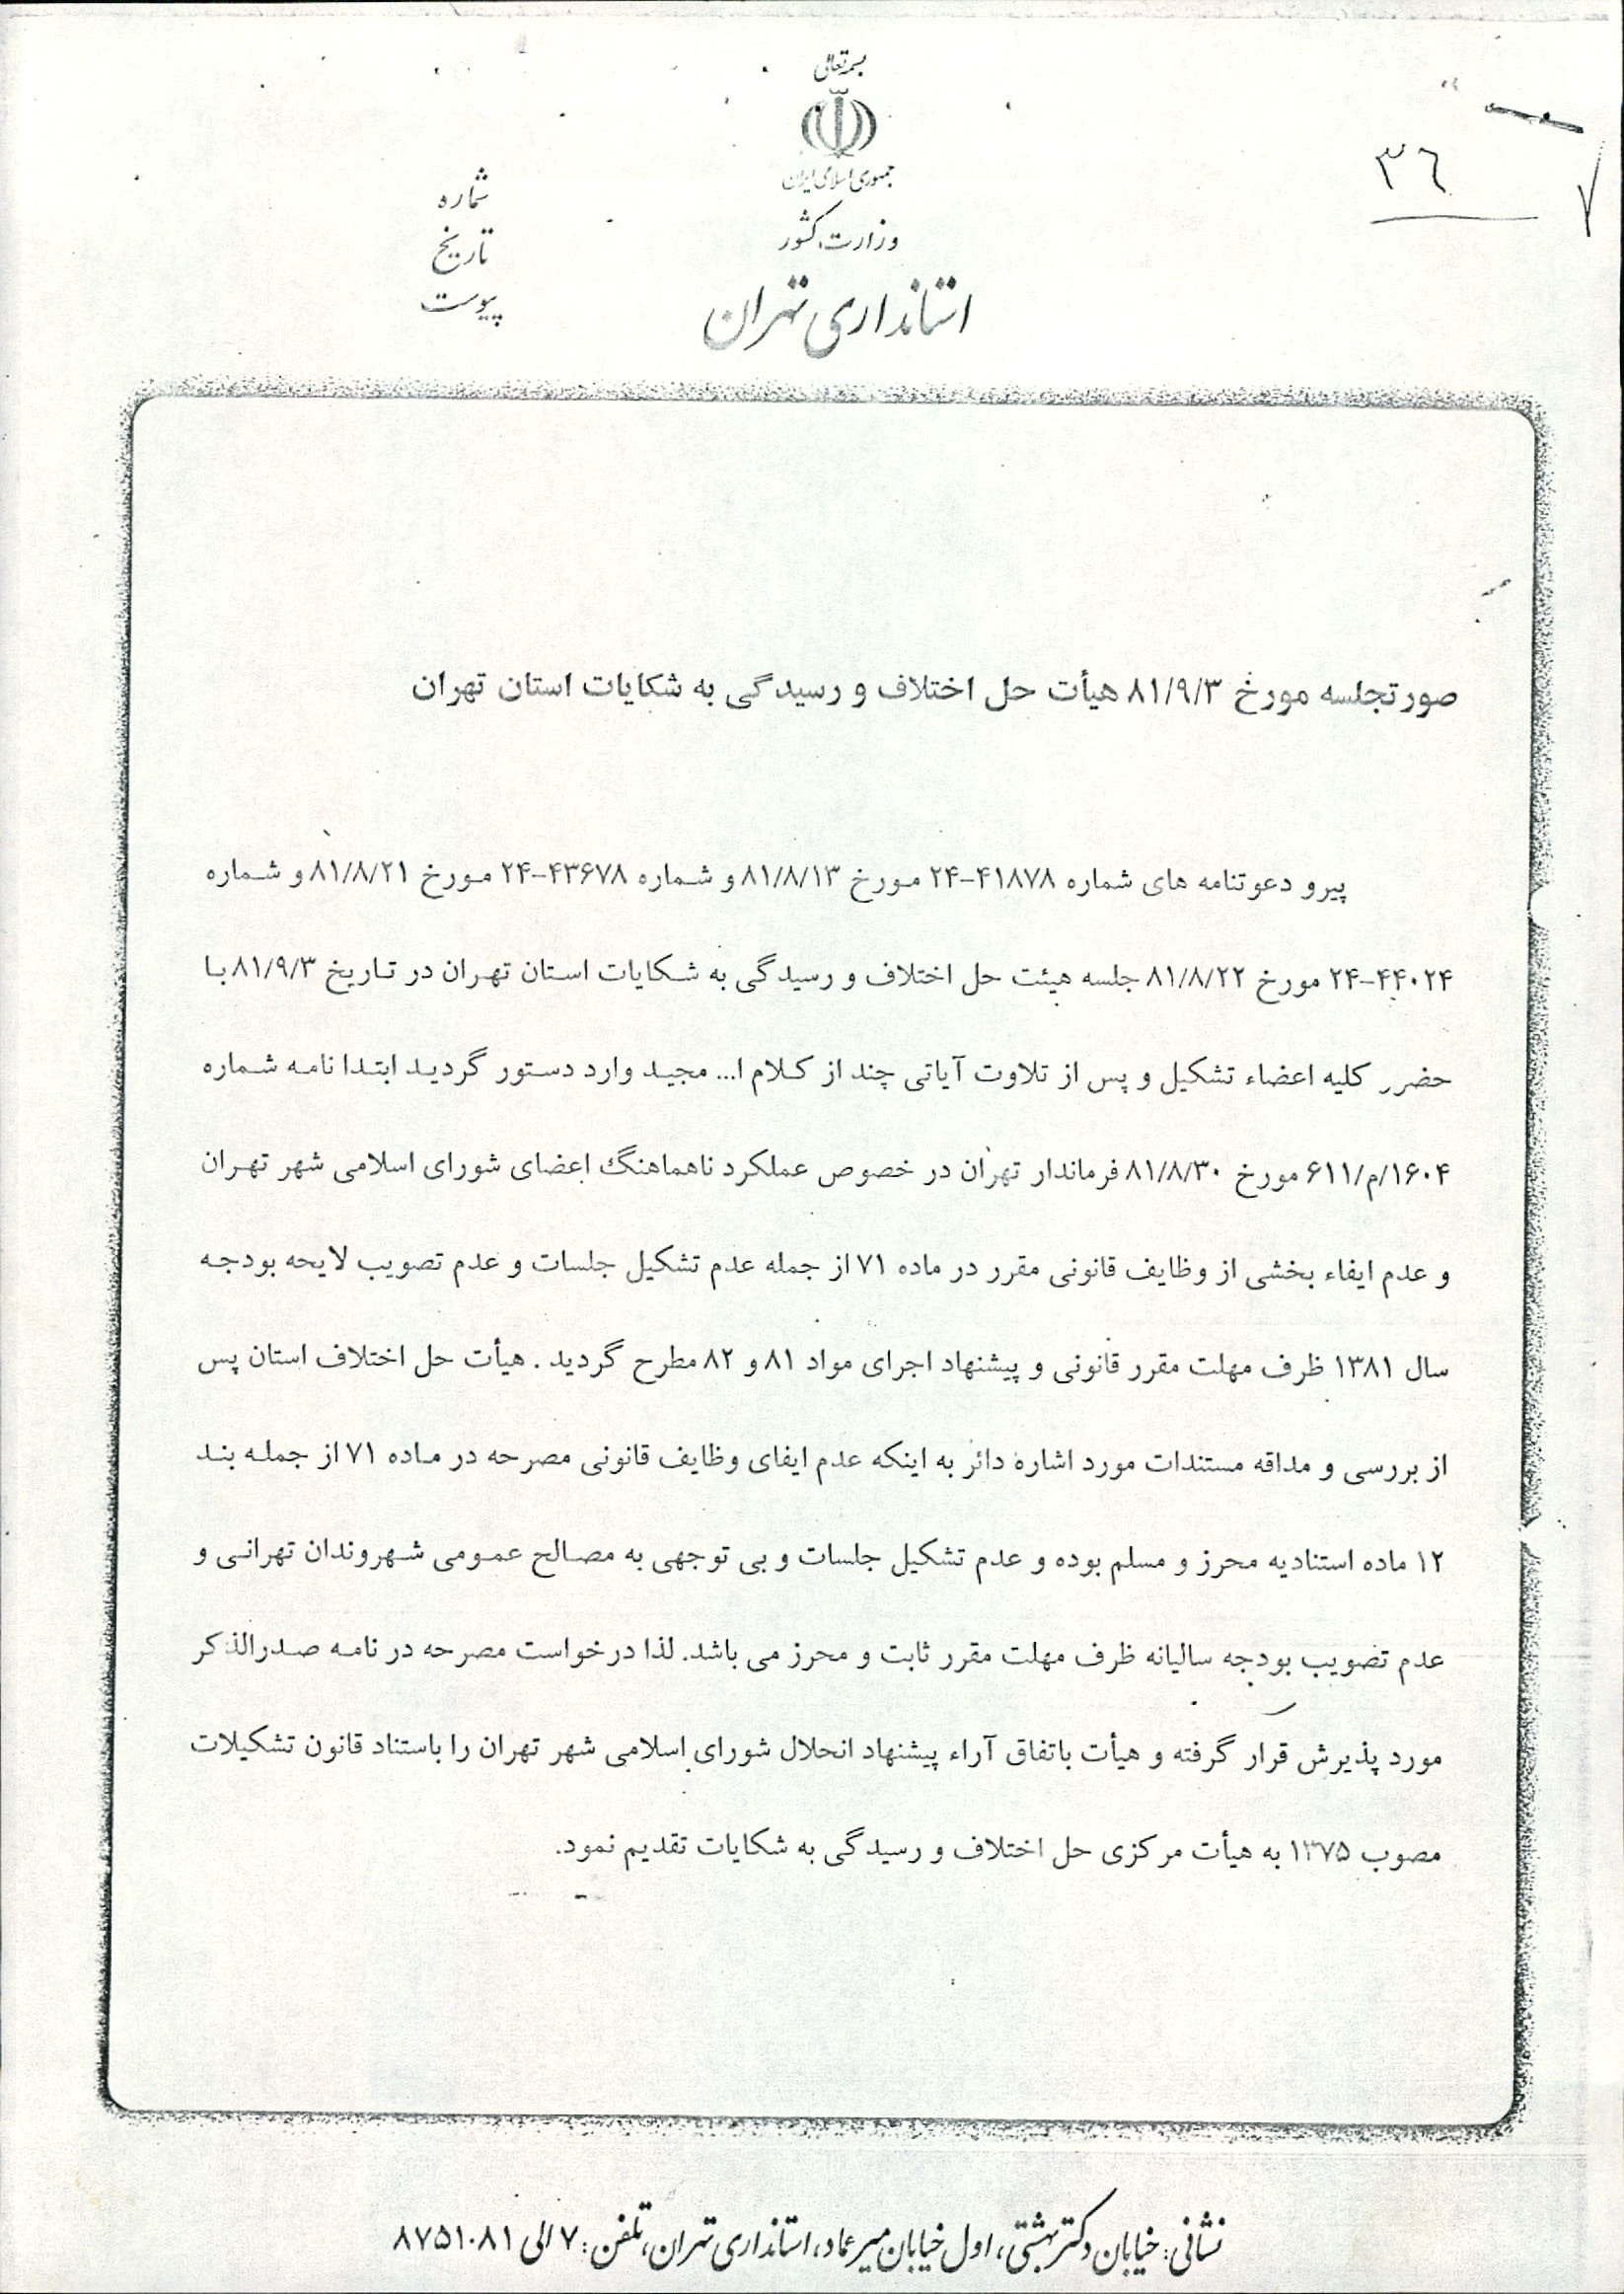 بسمه تعالی
جمهوری اسلامی ایران
وزارت کشور
استانداری تهران
شماره
تاریخ
پیوست
۳۶
صورتجلسه مورخ ۸۱/۹/۳ هیأت حل اختلاف و رسیدگی به شکایات استان تهران
پیرو دعوتنامه های شماره ۴۱۸۷۸-۲۴ مورخ ۸۱/۸/۱۳ و شماره ۴۳۶۷۸-۲۴ مورخ ۸۱/۸/۲۱ و شماره
۴۴۰۲۴-۲۴ مورخ ۸۱/۸/۲۲ جلسه هیئت حل اختلاف و رسیدگی به شکایات استان تهران در تاریخ ۸۱/۹/۳ با
حضرر کلیه اعضاء تشکیل و پس از تلاوت آیاتی چند از کلام ا... مجید وارد دستور گردید ابتدا نامه شماره
۱۶۰۴/م/۶۱۱ مورخ ۸۱/۸/۳۰ فرماندار تهران در خصوص عملکرد ناهماهنگ اعضای شورای اسلامی شهر تهران
و عدم ایفاء بخشی از وظایف قانونی مقرر در ماده ۷۱ از جمله عدم تشکیل جلسات و عدم تصویب لایحه بودجه
سال ۱۳۸۱ ظرف مهلت مقرر قانونی و پیشنهاد اجرای مواد ۸۱ و ۸۲ مطرح گردید . هیأت حل اختلاف استان پس
از بررسی و مداقه مستندات مورد اشاره دائر به اینکه عدم ایفای وظایف قانونی مصرحه در ماده ۷۱ از جمله بند
۱۲ ماده استنادیه محرز و مسلم بوده و عدم تشکیل جلسات و بی توجهی به مصالح عمومی شهروندان تهرانی و
عدم تصویب بودجه سالیانه ظرف مهلت مقرر ثابت و محرز می باشد. لذا درخواست مصرحه در نامه صدرالذکر
مورد پذیرش قرار گرفته و هیأت باتفاق آراء پیشنهاد انحلال شورای اسلامی شهر تهران را باستناد قانون تشکیلات
مصوب ۱۳۷۵ به هیأت مرکزی حل اختلاف و رسیدگی به شکایات تقدیم نمود.
نشانی: خیابان دکتر بهشتی، اول خیابان میرعماد، استانداری تهران، تلفن: ۷ الی ۸۷۵۱۰۸۱